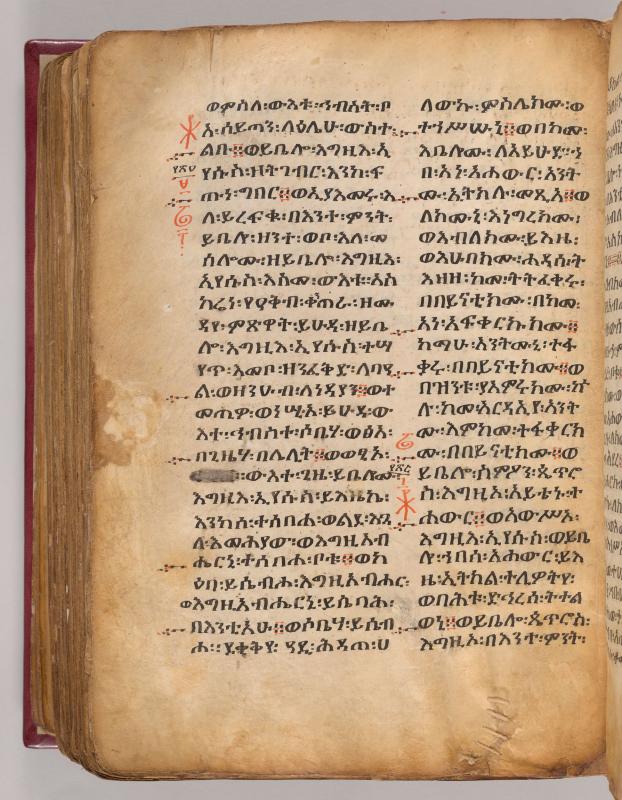 ወምስለ፡ውእቱ፡ኅብስት፡ቦ
አ፡ሰይጣን፡ለዕሌሁ፡ውስተ
ልቡ።ወይቤሎ፡እግዚእ፡ኢ
የሱስ፡ዘትገብር፡እንከ፡ፍ
ጡነ፡ግበር።ወኢያእመሩ፡እ
ለ፡ይረፍቁ፡በእንተ፡ምንት፡
ይቤሎ፡ዘንተ፡ወቦ፡እለ፡መ
ሰሎሙ፡ዘይቤሎ፡እግዚእ፡
ኢየሱስ፡እስመ፡ውእቱ፡አስ
ከሬነ፡የዓቅብ፡ቀጠራ፡ዘሙ
ዳየ፡ምጽዋት፡ይሁዳ፡ዘይቤ
ሎ፡እግዚእ፡ኢየሱስ፡ተሣ
የጥ፡እመቦ፡ዘንፈቅድ፡ለበዓ
ል፡ወዘንሁብ፡ለነዳያን።ወተ
መጢዎ፡ወነሢኦ፡ይሁዳ፡ው
እተ፡ኅብስተ፡ሶቤሃ፡ወፅአ፡
በጊዜሃ፡በሌሊት።ወወፂኦ፡
፡ውእተ፡ጊዜ፡ይቤሎሙ
እግዚእ፡ኢየሱስ፡ይእዜኬ፡
እንከሰ፡ተሰብሐ፡ወልደ፡እጓ
ለ፡እመሕያው፡ወእግዚአብ
ሔርኒ፡ተሰብሐ፡ቦቱ።ወከ
ዕበ፡ይሴብሖ፡እግዚአብሔር፡
ወእግዚአብሔርኒ፡ይሴባሕ፡
በእንቲአሁ።ወሶቤሃ፡ይሴብ
ሖ፡፡ደቂቅየ፡ዓዲ፡ሕዳጠ፡ሀ
ለውኩ፡ምስሌክሙ፡ወ
ተኀሥሡኒ።ወበከመ፡
እቤሎሙ፡ለአይሁድ፡ኀ
በ፡አነ፡አሐውር፡አንት
ሙ፡ኢትክሉ፡መጺአ።ወ
ለክሙኒ፡እነግረክሙ፡
ወእብለክሙ፡ይእዜ፡
ወእሁበክሙ፡ሐዳሰ፡ት
እዛዘ፡ከመ፡ትትፈቀሩ፡
በበይናቲክሙ፡በከመ፡
አነ፡አፍቀርኩክሙ።
ከማሁ፡አንትሙኒ፡ተፋ
ቀሩ፡በበይናቲክሙ።ወ
በዝንቱ፡ያአምሩክሙ፡ኵ
ሉ፡ከመ፡አርዳእየ፡አንት
ሙ፡እምከመ፡ተፋቀርክ
ሙ፡በበይናቲክሙ።ወ
ይቤሎ፡ስምዖን፡ጴጥሮ
ስ፡እግዚኦ፡አይቴኑ፡ተ
ሐውር።ወአውሥአ፡
እግዚእ፡ኢየሱስ፡ወይቤ
ሎ፡ኀበሰ፡አሐውር፡ይእ
ዜ፡ኢትክል፡ተሊዎትየ፡
ወበሕቱ፡ድኅረሰ፡ትተል
ወኒ።ወይቤሎ፡ጴጥሮስ፡
እግዚኦ፡በእንተ፡ምንት፡